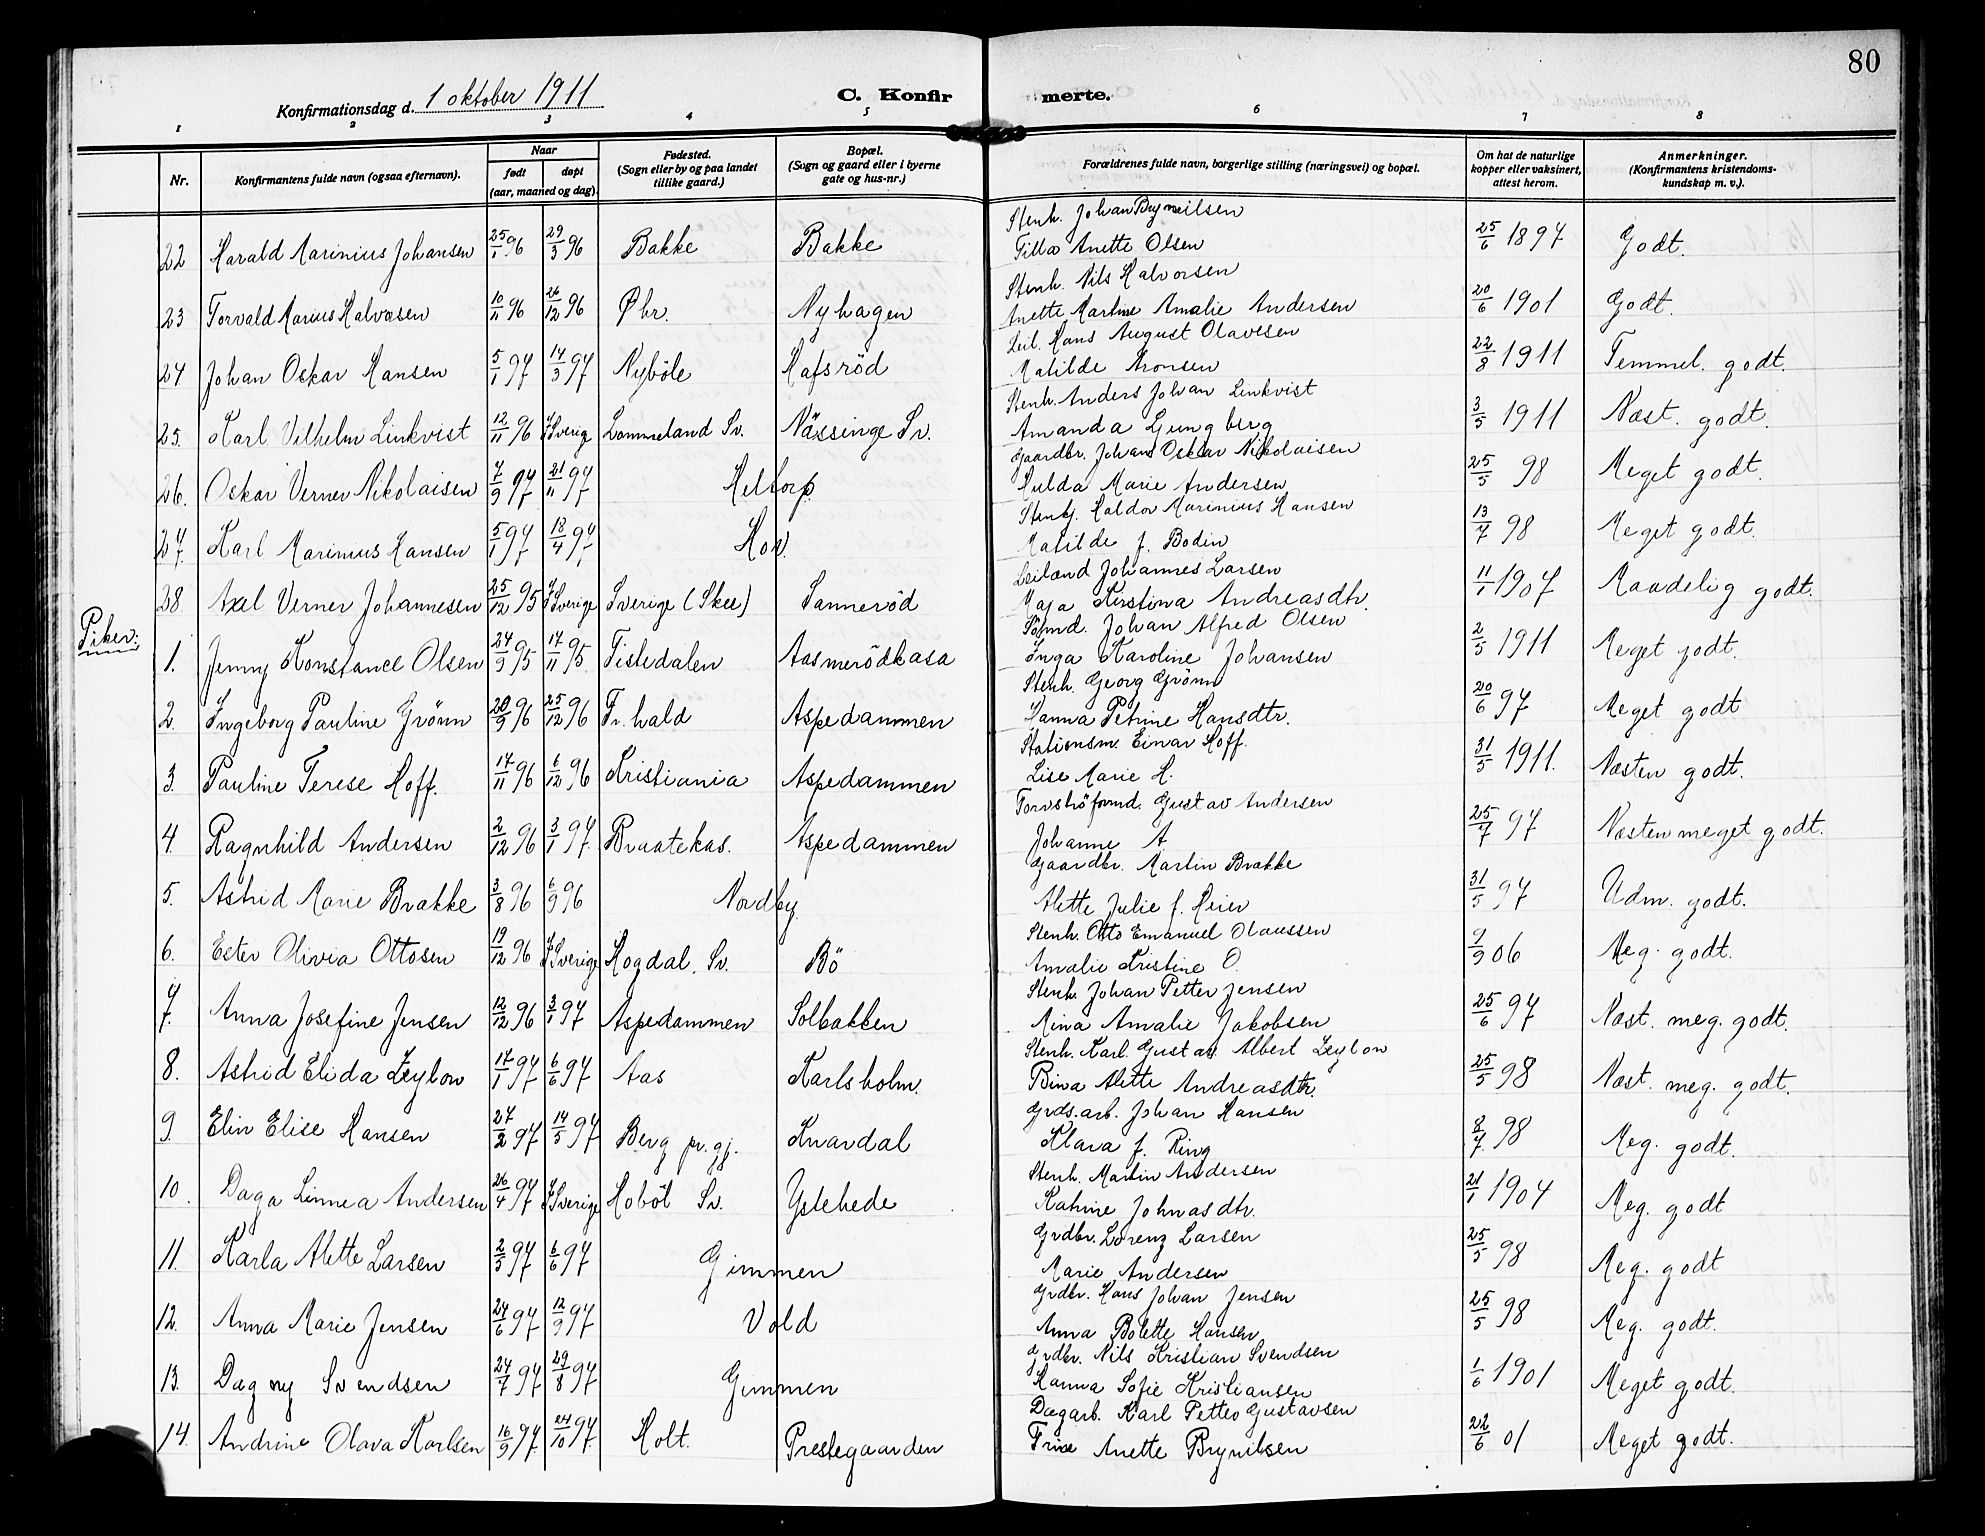 80
Konfirmationsdag d. 1 oktober 1911
C. Konfirmerte.
1 2 3 4 5 6 7 8
Nr.
Konfirmantens fulde navn (ogsaa efternavn).
Naar
født
døpt
(aar, maaned og dag).
Fødested.
(Sogn eller by og paa landet
tillike gaard.)
Bopæl.
(Sogn og gaard eller i byerne
gate og hus-nr.)
Forældrenes fulde navn, borgerlige stilling (næringsvei) og bopæl.
Om hat de naturlige
kopper eller vaksinert,
attest herom.
Anmerkninger.
(Konfirmantens kristendoms-
kundskap m. v.).
Stenh. Johan Brynnilsen
22 Harald Marinius Johansen 25/1 96 29/3 96 Bakke Bakke Tilla Anette Olsen 25/6 1897 Godt.
Stenh. Nils Halvorsen
23 Torvald Marius Halvorsen 10/11 96 26/12 96 Øhr. Nyhagen Anette Martine Amalie Andersen 20/6 1901 Godt.
Leil. Hans August Olavesen
24 Johan Oskar Hansen 5/1 97 14/3 97 Nyböle Hafsröd Matilde Aronsen 22/8 1911 Temmel. godt.
Stenh. Anders Johan Linkvist
25. Karl Vilhelm Linkvist 12/11 96 I Sverig Lommeland Sv. Nässinge Sv. Amanda Ljungberg 3/5 1911 Næst. godt.
Gaardbr. Johan Oskar Nikolaisen
26. Oskar Verner Nikolaisen 7/9 97 21/11 97 Heltorp Hulda Marie Andersen 25/5 98 Meget godt.
Stenhj. Haldor Marinius Hansen
27. Karl Marinius Hansen 5/1 97 18/4 97 Hov. Matilde f. Bodin 13/7 98 Meget godt.
Leiland Johannes Larsen
28. Axel Verner Johannesen 25/12 95 I Sverige Sverige (Skee) Sanneröd Maja Kirstina Andreasdtr. 11/1 1907 Maadelig godt.
Piker:
Johan Alfred Olsen
1. Jenny Konstance Olsen 24/9 95 17/11 95. Tistedalen Aasmerödkasa Inga Karoline Johansen 2/5 1911 Meget godt.
Stenh. Georg Grönn
2. Ingeborg Pauline Grönn 20/9 96 25/12 96 Fr.hald Aspedammen Hanna Petrine Hansdtr. 20/6 97 Meget godt
Stationsm. Einar Hoff.
3. Pauline Terese Hoff. 17/11 96 6/12 96 Kristiania Aspedammen Lise Marie H. 31/5 1911. Næsten godt.
Gustav Andersen
4. Ragnhild Andersen 2/12 96 3/1 97. Braatekas. Aspedammen Johanne A. 25/7 97 Næsten meget godt.
Gaardbr. Martin Brække
5. Astrid Marie Brække 3/8 96 6/9 96 Nordby Alette Julie f. Heier 31/5 97 Udm. godt.
Stenh. Otto Emanuel Olaussen
6. Ester Olivia Ottosen 19/12 96 I Sverige Hogdal, Sv. Bö Amalie Kristine O. 9/9 06 Meg. godt.
Stenh. Johan Petter Jensen
7. Anna Josefine Jensen 12/12 96 3/1 97 Aspedammen Solbakken Mina Amalie Jakobsen 25/6 97 Næst. meg. godt.
Stenh. Karl. Gustav Albert Zeylon
8. Astrid Elida Zeylon 17/1 97 6/6 97 Aas Karlsholm. Bina Alette Andreasdtr. 25/5 98 Næst. meg. godt.
Grds.arb. Johan Hansen
9. Elin Elise Hansen 27/2 97 14/5 97 Berg pr.gj. Knardal Klara f. Ring 8/7 98 Meg. godt.
Stenh. Martin Andersen
10. Daga Linnea Andersen 26/4 97 I Sverige Hoböl Sv. Ystehede Katrine Johnasdtr. 21/1 1904 Meg. godt
Grdbr. Lorenz Larsen
11. Karla Alette Larsen 2/5 97 6/6 97 Gimmen Marie Andersen 25/5 98 Meg. godt
Grdbr. Hans Johan Jensen
12. Anna Marie Jensen 24/6 97 12/9 97 Vold Anna Bolette Hansen 25/5 98 Meg. godt.
Grdbr. Nils Kristian Svendsen
13. Dagny Svendsen 24/7 97 29/8 97 Gimmen Hanna Sofie Kristiansen 1/6 1901 Meget godt.
Dagarb. Karl Petter Gustavsen
14. Andrine Olava Karlsen 16/9 97. 24/10 97. Holt. Prestegaarden Anette Brynilsen 22/6 01 Meget godt.